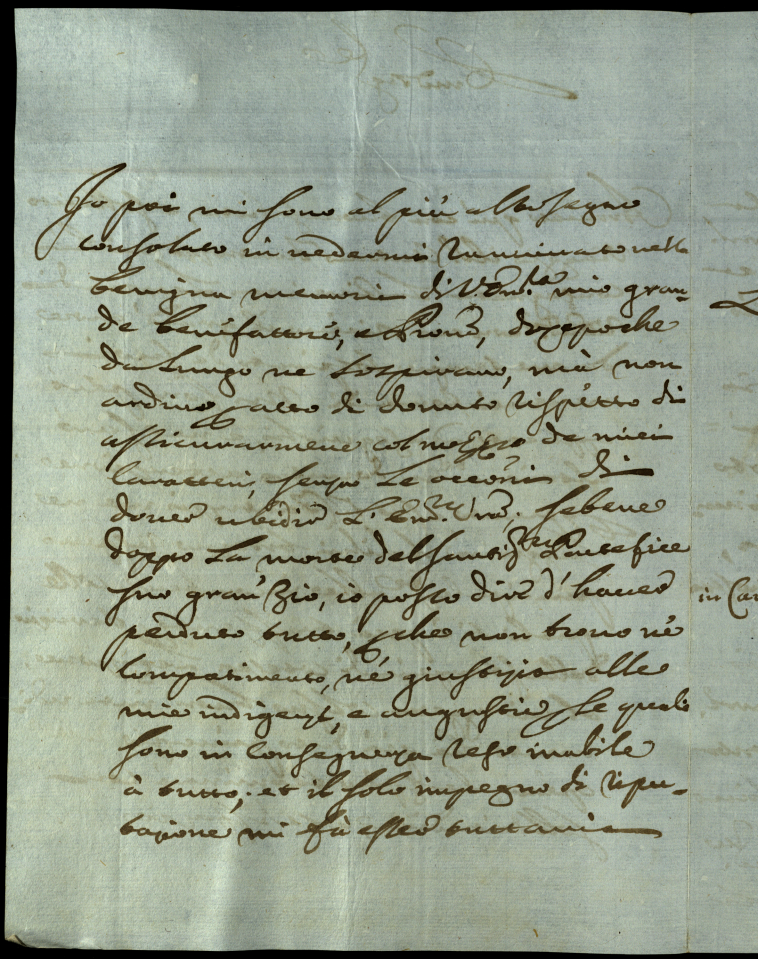 Io poi mi sono al più alto segno
consolato in vedermi ruminato nella
benigna memoria di V. Em.za mio gran-
de benifattore, e Prone, doppo che
da lungo ne sospiravo, mà non
ardivo p atto di dovuto rispetto di
assicurarmene col mezzo de miei
caratteri, senza le occoni di
dover ubidire L'Em.ze Vre; sebene
doppo la morte del Santo Pontefice
suo gran Zio, io posso dire d'haver
perduto tutto, p che non trovo nè
compatimento, nè giustizia alle
mie indigenze, e angustie p le quali
sono in consegueza reso inabile
à tutto; et il solo impegno di ripu-
tazione mi fà esser tuttavia
in Car